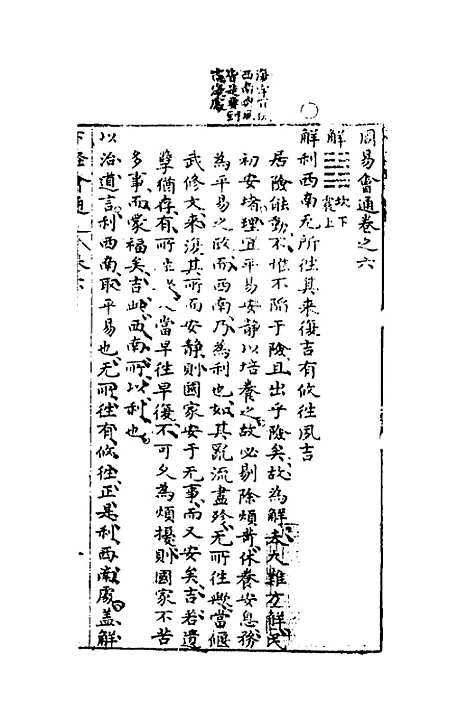 周易會通卷之六
解 坎下 震上
解利西南无所往其來復吉有攸往夙吉
居險能動不惟不陷于險且出乎險矣故為解夫大難方解民
初安堵理宜平易安静以培養之故必剔除煩苛休養安息務
為平易之政而西南乃為利也如其亂流盡殄无所往歟當偃
武修文來復其所而安静則國家安于无事而又安矣吉若遺
孽猶存有所往當早往早復不可久為煩擾則國家不苦
多事而蒙福矣吉此西南所以利也
以治道言利西南取平易也无所往有攸往正是利西南處蓋解